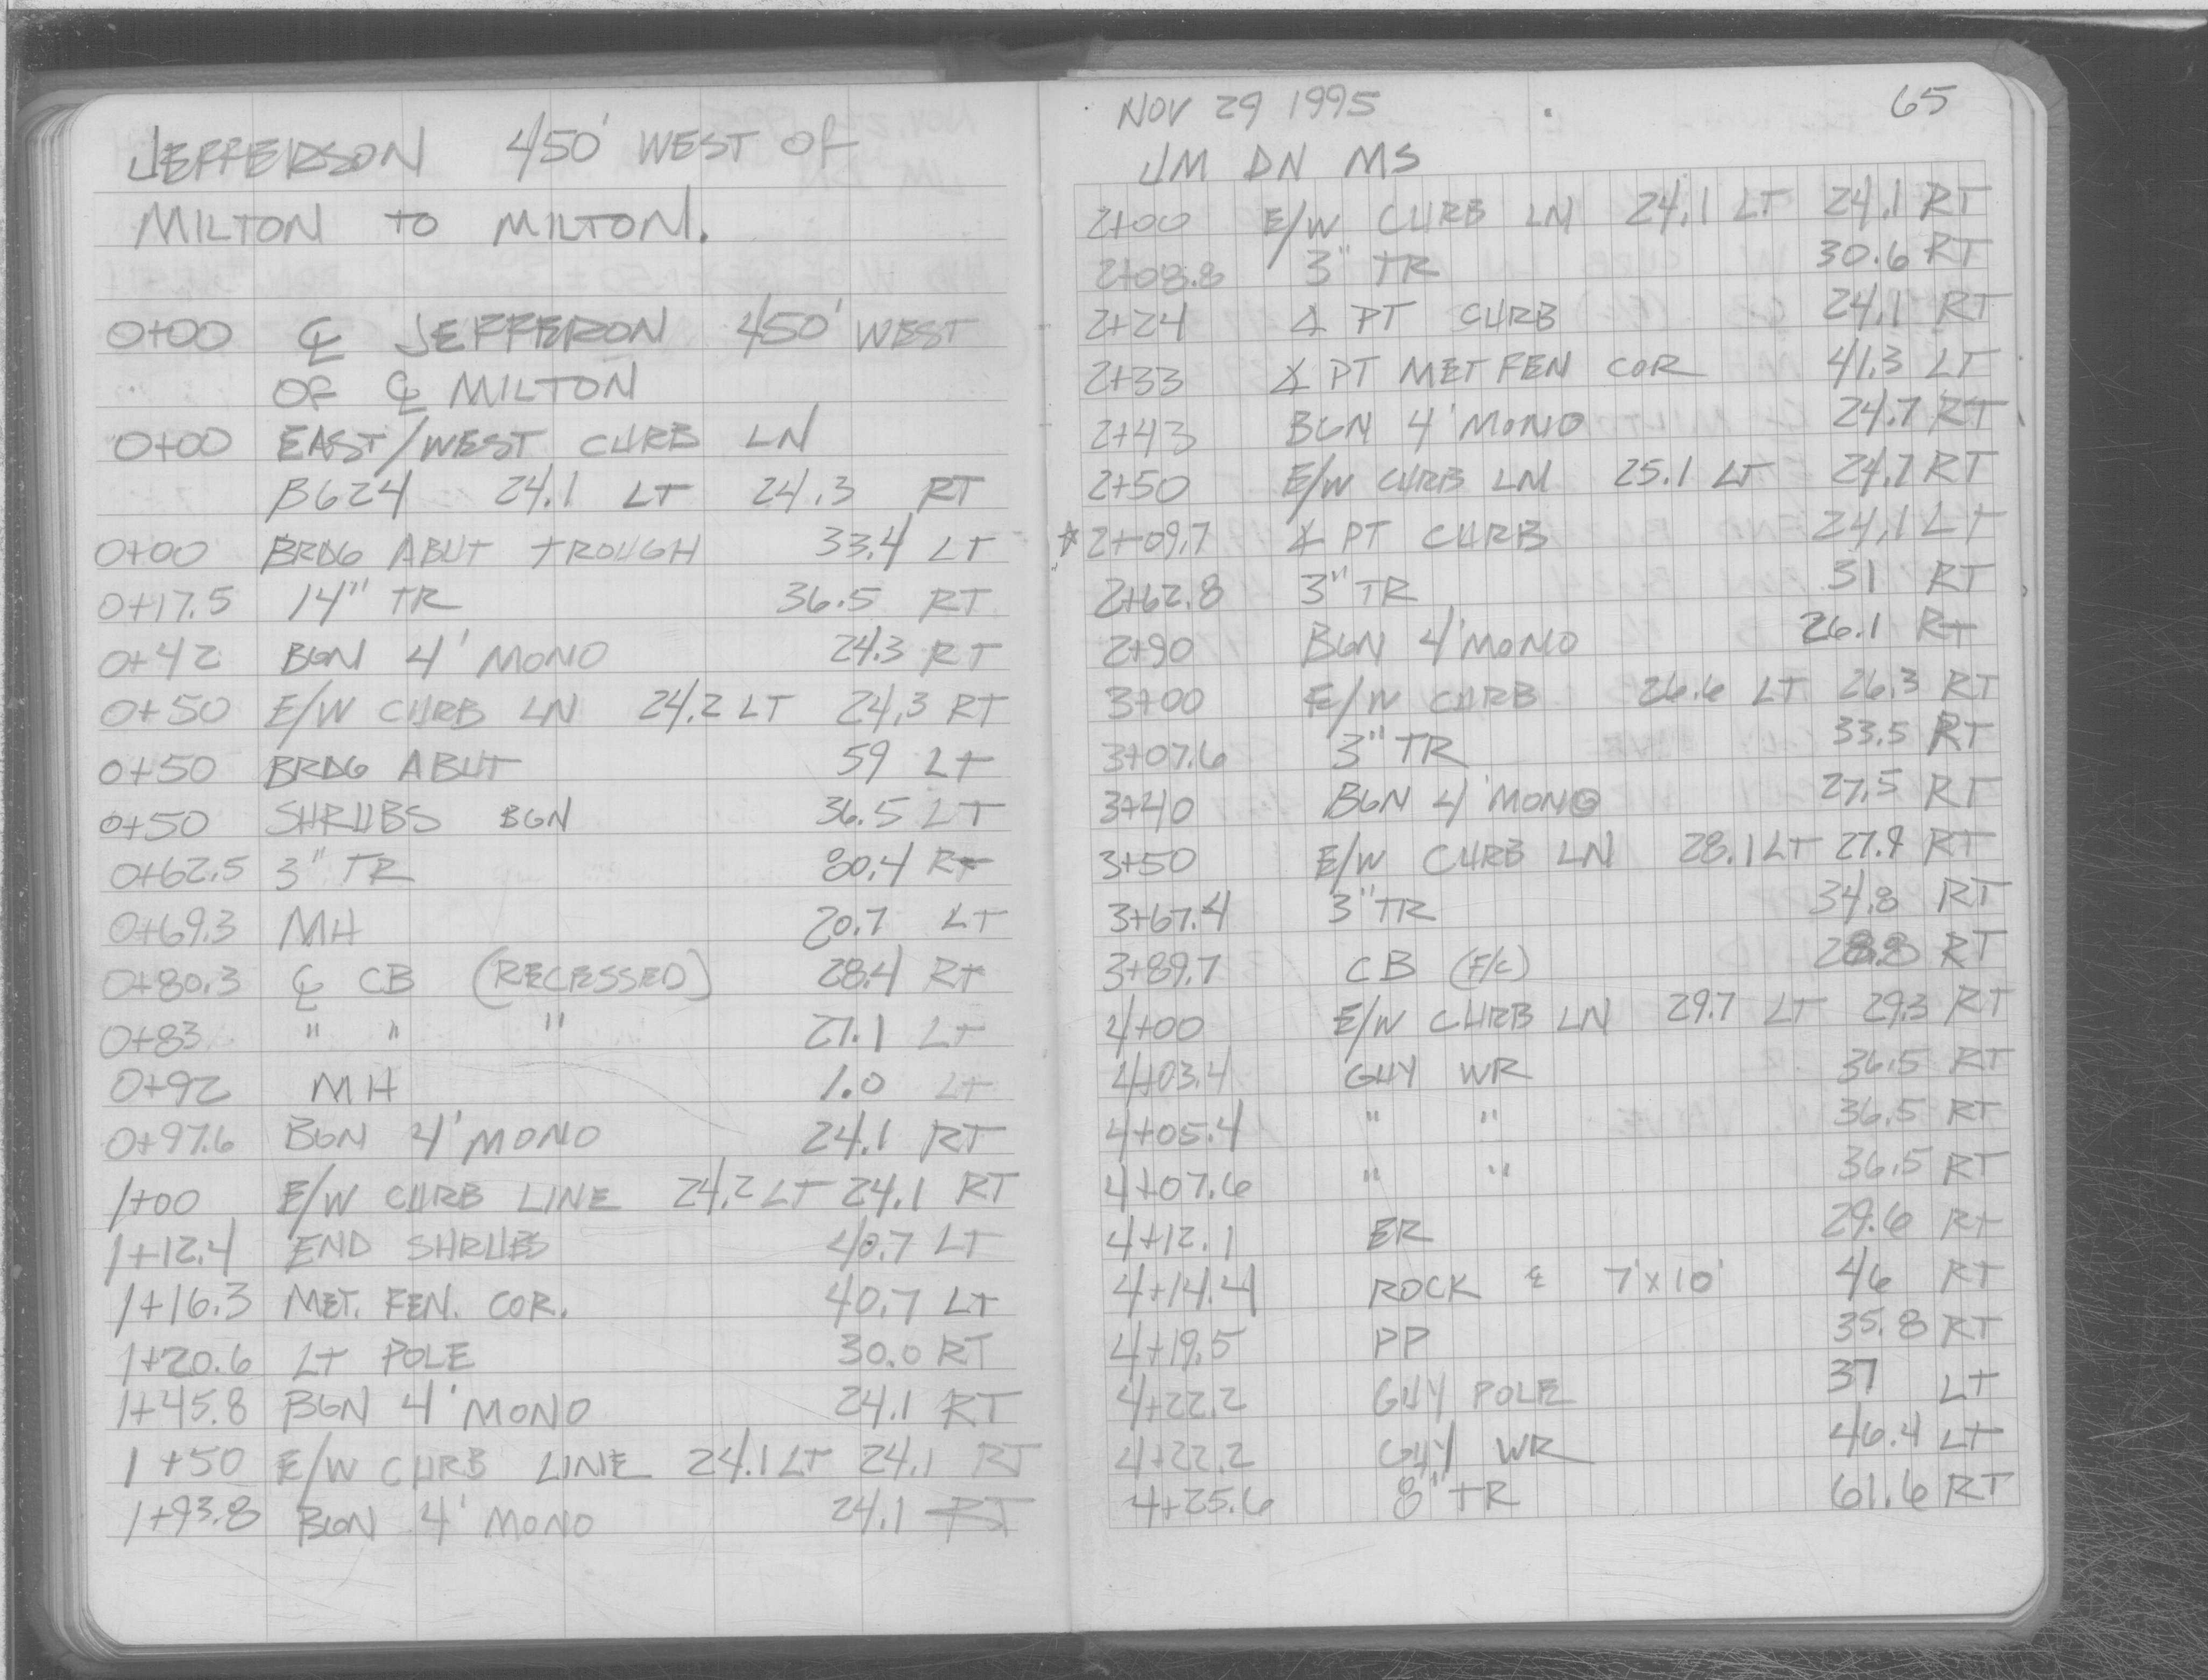 JEFFERSON 450' WEST OF
MILTON TO MILTON.
0+00 ℄ JEFFERON 450' WEST
OF ℄ MILTON
0+00 EAST/WEST CURB LN
B624 24.1 LT 24.3 RT
0+00 BRDG ABUT TROUGH 33.4 LT
0+17.5 14" TR 36.5 RT
0+42 BGN 4' MONO 24.3 RT
0+50 E/W CURB LN 24.2 LT 24.3 RT
0+50 BRDG ABUT 59 LT
0+50 SHRUBS BGN 36.5 LT
0+62.5 3" TR 30.4 RT
0+69.3 MH 20.7 LT
0+80.3 ℄ CB (RECESSED) 28.4 RT
0+83 " " " 27.1 LT
0+92 MH 1.0 LT
0+97.6 BGN 4' MONO 24.1 RT
1+00 E/W CURB LINE 24.2 LT 24.1 RT
1+12.4 END SHRUBS 40.7 LT
1+16.3 MET. FEN. COR. 40.7 LT
1+20.6 LT POLE 30.0 RT
1+45.8 BGN 4' MONO 24.1 RT
1+50 E/W CURB LINE 24.1 LT 24.1 RT
1+93.8 BGN 4' MONO 24.1 RT
NOV 29 1995 65
JM DN MS
2+00 E/W CURB LN 24.1 LT 24.1 RT
2+08.8 3" TR 30.6 RT
2+24 ∡ PT CURB 24.1 RT
2+33 ∡ PT MET FEN COR 41.3 LT
2+43 BGN 4' MONO 24.7 RT
2+50 E/W CURB LN 25.1 LT 24.7 RT
☆ 2+09.7 ∡ PT CURB 24.1 LT
2+62.8 3" TR 31 RT
2+90 BGN 4' MONO 26.1 RT
3+00 E/W CURB 26.6 LT 26.3 RT
3+07.6 3" TR 33.5 RT
3+40 BGN 4' MONO 27.5 RT
3+50 E/W CURB LN 28.1 LT 27.9 RT
3+67.4 3" TR 34.8 RT
3+89.7 CB (F/C) 28.8 RT
4+00 E/W CURB LN 29.7 LT 29.3 RT
4+03.4 GUY WR 36.5 RT
4+05.4 " " 36.5 RT
4+07.6 " " 36.5 RT
4+12.1 ER 29.6 RT
4+14.4 ROCK ℄ 7'x10' 46 RT
4+19.5 PP 35.8 RT
4+22.2 GUY POLE 37 LT
4+22.2 GUY WR 46.4 LT
4+25.6 8" TR 61.6 RT